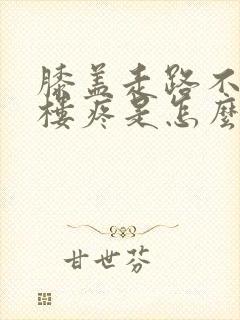 膝盖走路不
楼疼是怎麼
甘世芬